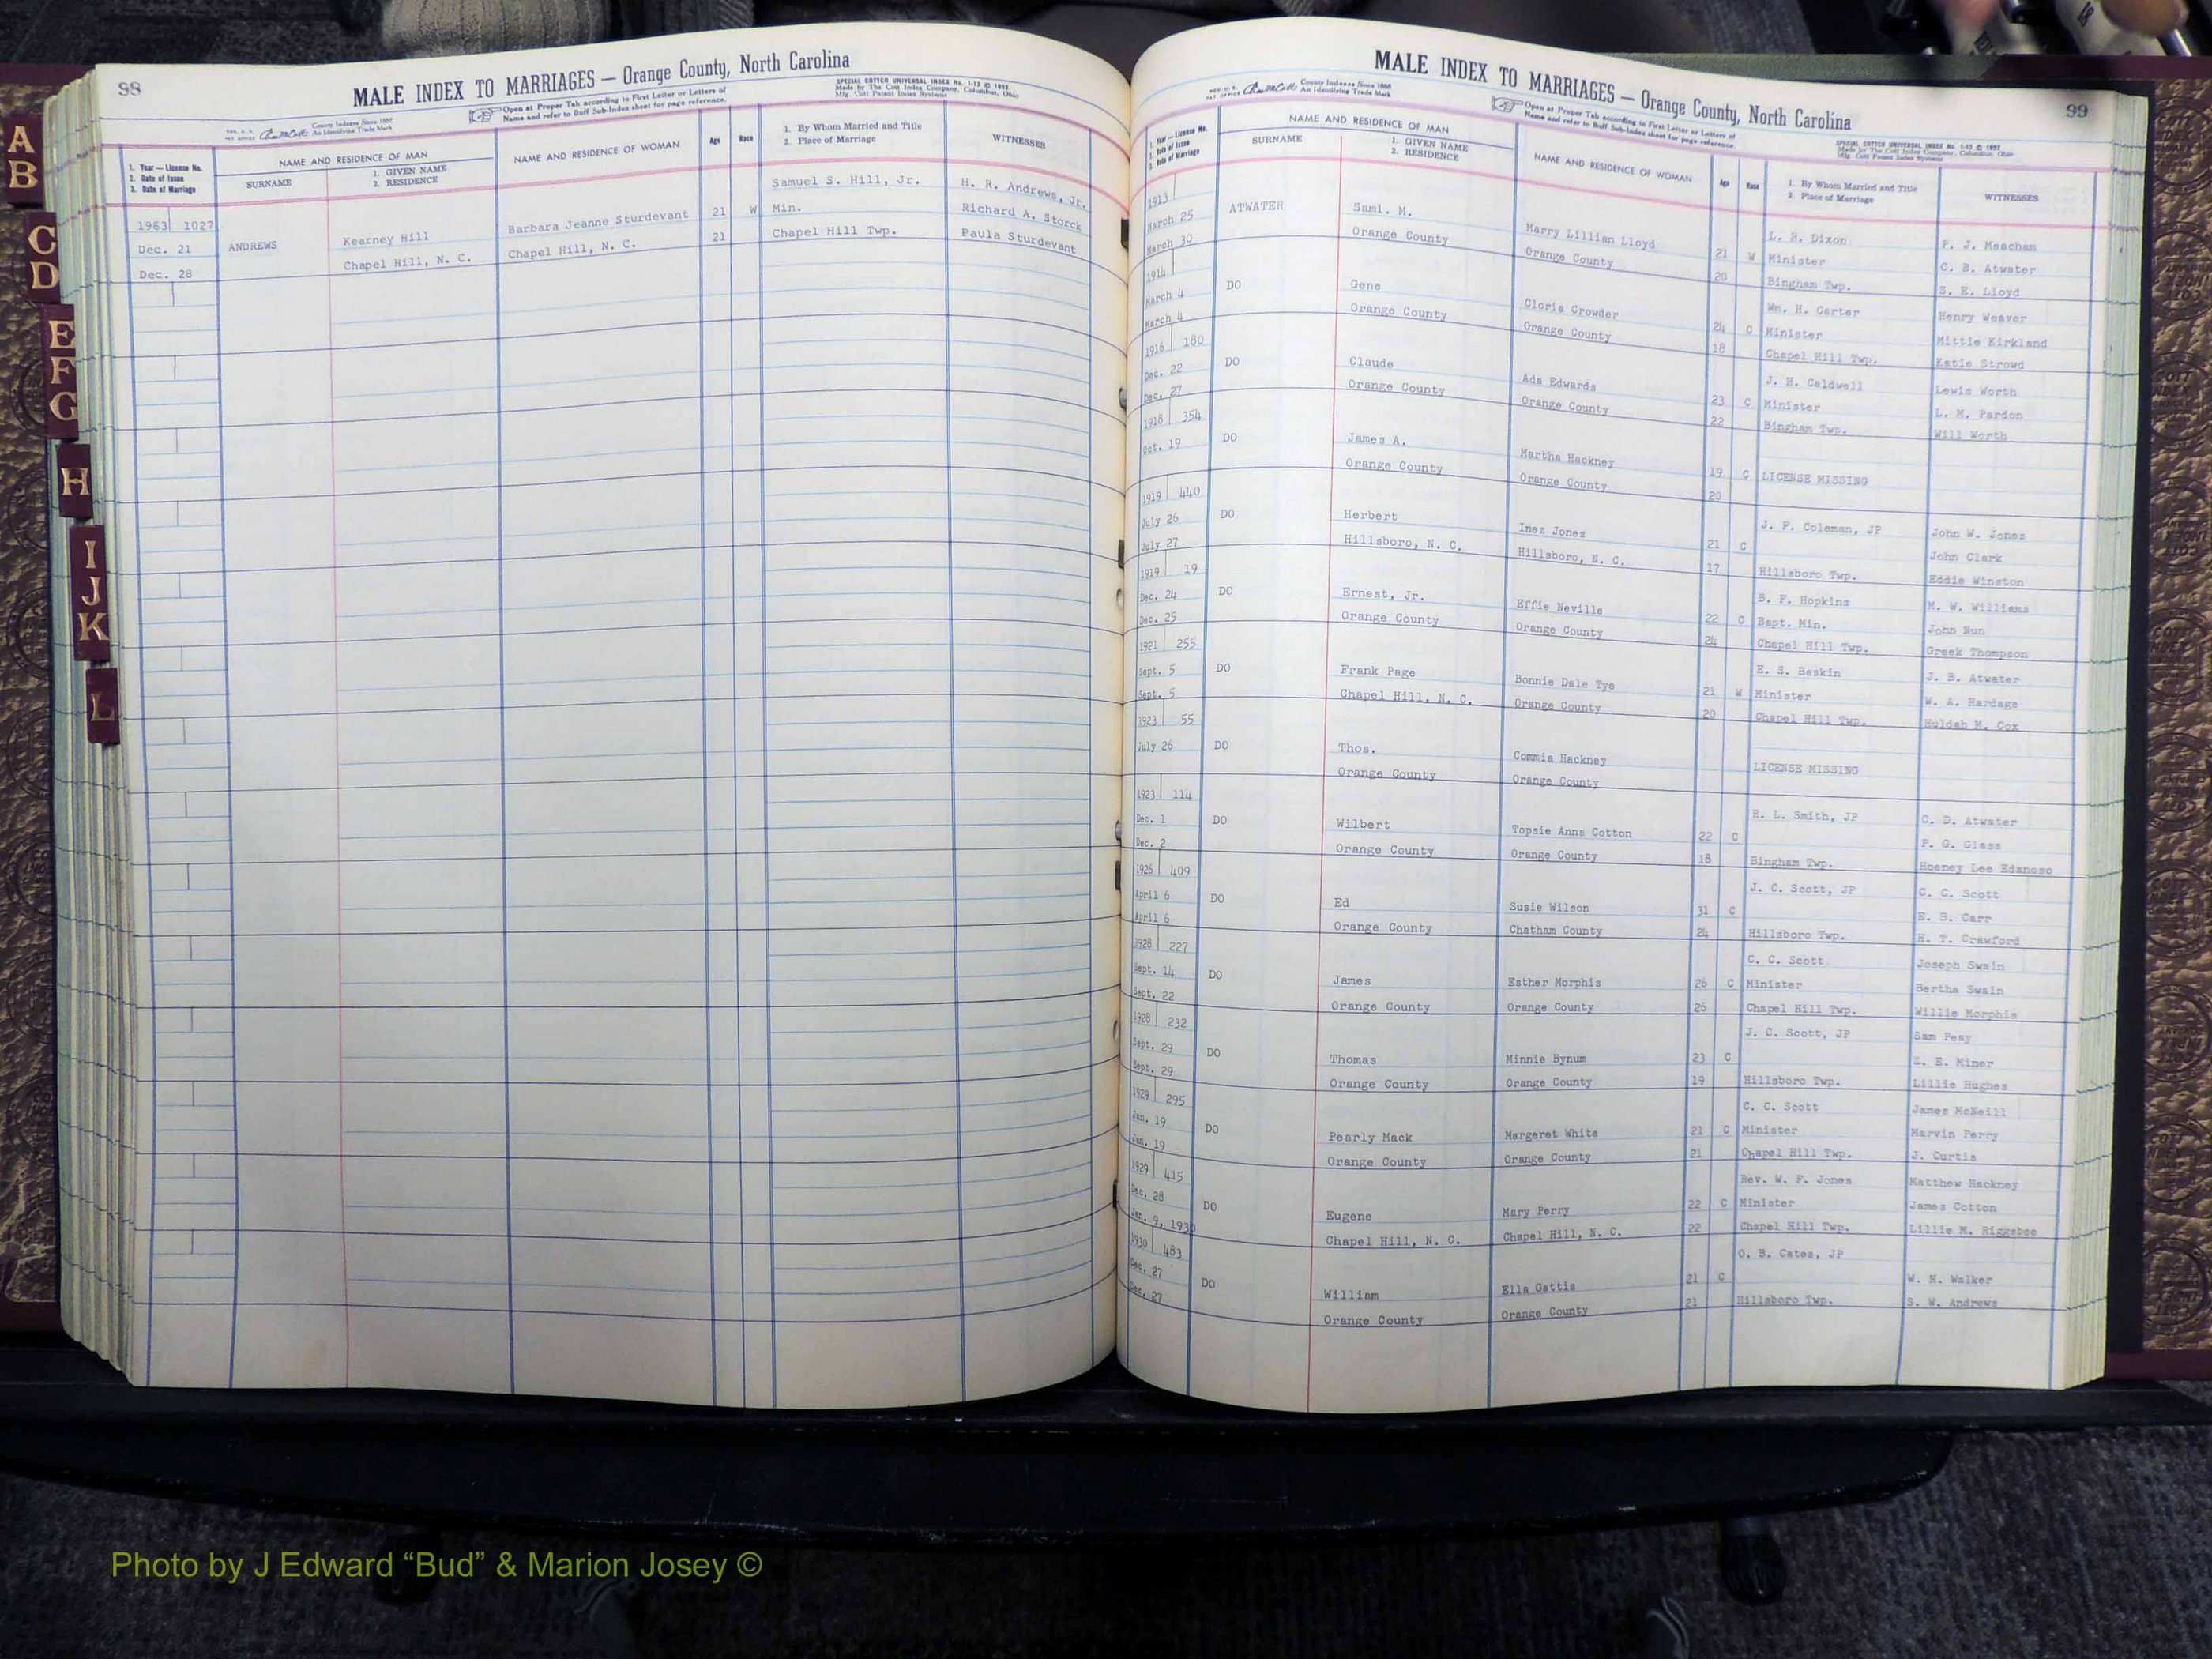 98
MALE INDEX TO MARRIAGES — Orange County, North Carolina
County Indexes Since 1888
An Identifying Trade Mark
Open at Proper Tab according to First Letter or Letters of
Name and refer to Buff Sub-Index sheet for page reference.
SPECIAL COTTCO UNIVERSAL INDEX No. 1-12 © 1953
Made by The Cott Index Company, Columbus, Ohio
Mfg. Cott Patent Index Systems
1. Year — License No.
2. Date of Issue
3. Date of Marriage
NAME AND RESIDENCE OF MAN
SURNAME
1. GIVEN NAME
2. RESIDENCE
NAME AND RESIDENCE OF WOMAN
Age
Race
1. By Whom Married and Title
2. Place of Marriage
WITNESSES
Samuel S. Hill, Jr. H. R. Andrews, Jr.
1963 1027 Kearney Hill Barbara Jeanne Sturdevant 21 W Min. Richard A. Storck
Dec. 21 ANDREWS Chapel Hill, N. C. Chapel Hill, N. C. 21 Chapel Hill Twp. Paula Sturdevant
Dec. 28
A
B
C
D
E
F
G
H
I
J
K
L
MALE INDEX TO MARRIAGES — Orange County, North Carolina
99
County Indexes Since 1888
An Identifying Trade Mark
Open at Proper Tab according to First Letter or Letters of
Name and refer to Buff Sub-Index sheet for page reference.
SPECIAL COTTCO UNIVERSAL INDEX No. 1-12 © 1953
Made by The Cott Index Company, Columbus, Ohio
Mfg. Cott Patent Index Systems
1. Year — License No.
2. Date of Issue
3. Date of Marriage
NAME AND RESIDENCE OF MAN
SURNAME
1. GIVEN NAME
2. RESIDENCE
NAME AND RESIDENCE OF WOMAN
Age
Race
1. By Whom Married and Title
2. Place of Marriage
WITNESSES
1913 L. B. Dixon P. J. Meacham
March 25 ATWATER Saml. M. Marry Lillian Lloyd 21 W Minister C. B. Atwater
March 30 Orange County Orange County 20 Bingham Twp. S. E. Lloyd
1914 Wm. H. Carter Henry Weaver
March 4 DO Gene Cloria Crowder 24 C Minister Mittie Kirkland
March 4 Orange County Orange County 18 Chapel Hill Twp. Katie Strowd
1916 180 J. H. Caldwell Lewis Worth
Dec. 22 DO Claude Ada Edwards 23 C Minister L. M. Pardon
Dec. 27 Orange County Orange County 22 Bingham Twp. Will Worth
1918 354
Oct. 19 DO James A. Martha Hackney 19 C LICENSE MISSING
Orange County Orange County 20
1919 440 J. F. Coleman, JP John W. Jones
July 26 DO Herbert Inez Jones 21 C John Clark
July 27 Hillsboro, N. C. Hillsboro, N. C. 17 Hillsboro Twp. Eddie Winston
1919 19 B. F. Hopkins M. W. Williams
Dec. 24 DO Ernest, Jr. Effie Neville 22 C Bapt. Min. John Nun
Dec. 25 Orange County Orange County 24 Chapel Hill Twp. Greek Thompson
1921 255 E. S. Baskin J. B. Atwater
Sept. 5 DO Frank Page Bonnie Dale Tye 21 W Minister W. A. Hardage
Sept. 5 Chapel Hill, N. C. Orange County 20 Chapel Hill Twp. Huldah M. Cox
1923 55
July 26 DO Thos. Commia Hackney LICENSE MISSING
Orange County Orange County
1923 114 H. L. Smith, JP C. D. Atwater
Dec. 1 DO Wilbert Topsie Anna Cotton 22 C P. G. Glass
Dec. 2 Orange County Orange County 18 Bingham Twp. Hoeney Lee Edanoso
1926 409 J. C. Scott, JP C. C. Scott
April 6 DO Ed Susie Wilson 31 C E. B. Carr
April 6 Orange County Chatham County 24 Hillsboro Twp. H. T. Crawford
1928 227 C. C. Scott Joseph Swain
Sept. 14 DO James Esther Morphis 26 C Minister Bertha Swain
Sept. 22 Orange County Orange County 26 Chapel Hill Twp. Willie Morphis
1928 232 J. C. Scott, JP Sam Peay
Sept. 29 DO Thomas Minnie Bynum 23 C Z. E. Miner
Sept. 29 Orange County Orange County 19 Hillsboro Twp. Lillie Hughes
1929 295 C. C. Scott James McNeill
Jan. 19 DO Pearly Mack Margaret White 21 C Minister Marvin Perry
Jan. 19 Orange County Orange County 21 Chapel Hill Twp. J. Curtis
1929 415 Rev. W. F. Jones Matthew Hackney
Dec. 28 DO Eugene Mary Perry 22 C Minister James Cotton
Jan. 9, 1930 Chapel Hill, N. C. Chapel Hill, N. C. 22 Chapel Hill Twp. Lillie M. Riggsbee
1930 483 O. B. Cates, JP
Dec. 27 DO William Ella Gattis 21 C W. H. Walker
Dec. 27 Orange County Orange County 21 Hillsboro Twp. S. W. Andrews
Photo by J Edward “Bud” & Marion Josey ©